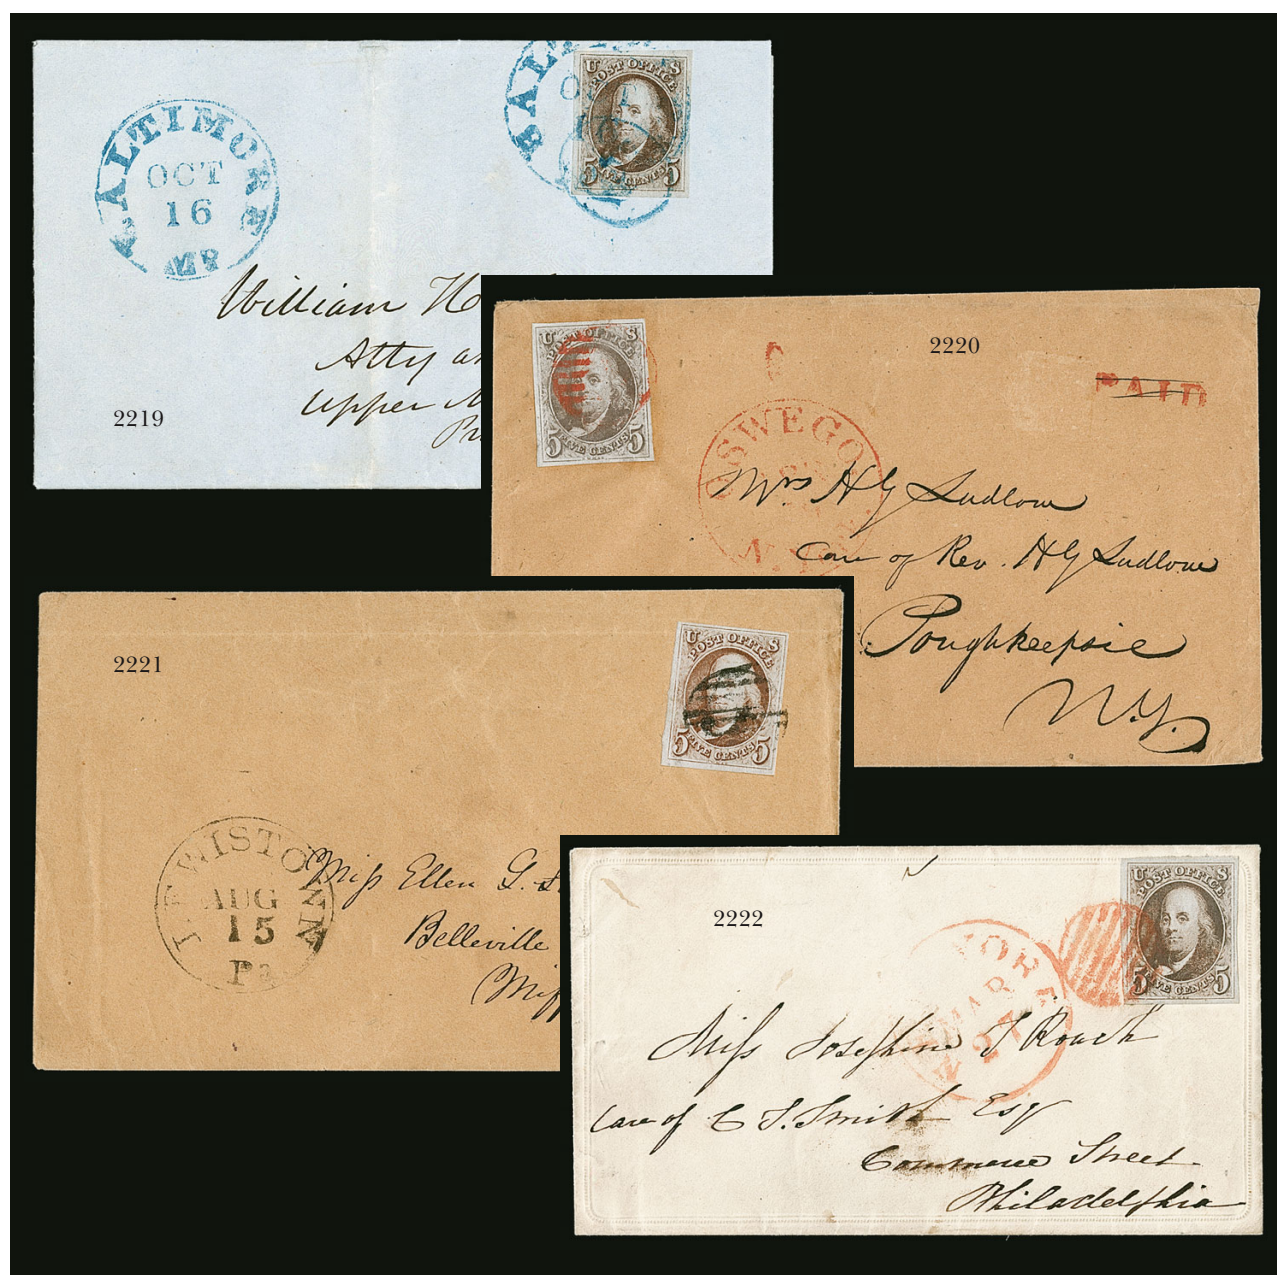 BALTIMORE
OCT
16
Md
BALTIM
OCT
16
U S
POST OFFICE
5 FIVE CENTS 5
William H
Atty an
Upper M
Pr
2219
U S
POST OFFICE
5 FIVE CENTS 5
2220
PAID
OSWEGO
N.Y.
Mrs H G Ludlow
Care of Rev. H G Ludlow
Poughkeepsie
N.Y.
2221
U S
POST OFFICE
5 FIVE CENTS 5
LEWISTOWN
AUG
15
Pa
Miss Ellen G.
Belleville
Miff
2222
U S
POST OFFICE
5 FIVE CENTS 5
YORK
MAR
27
N
Miss Josephine T Roach
Care of C S. Smith Esqr
Commerce Street
Philadelphia